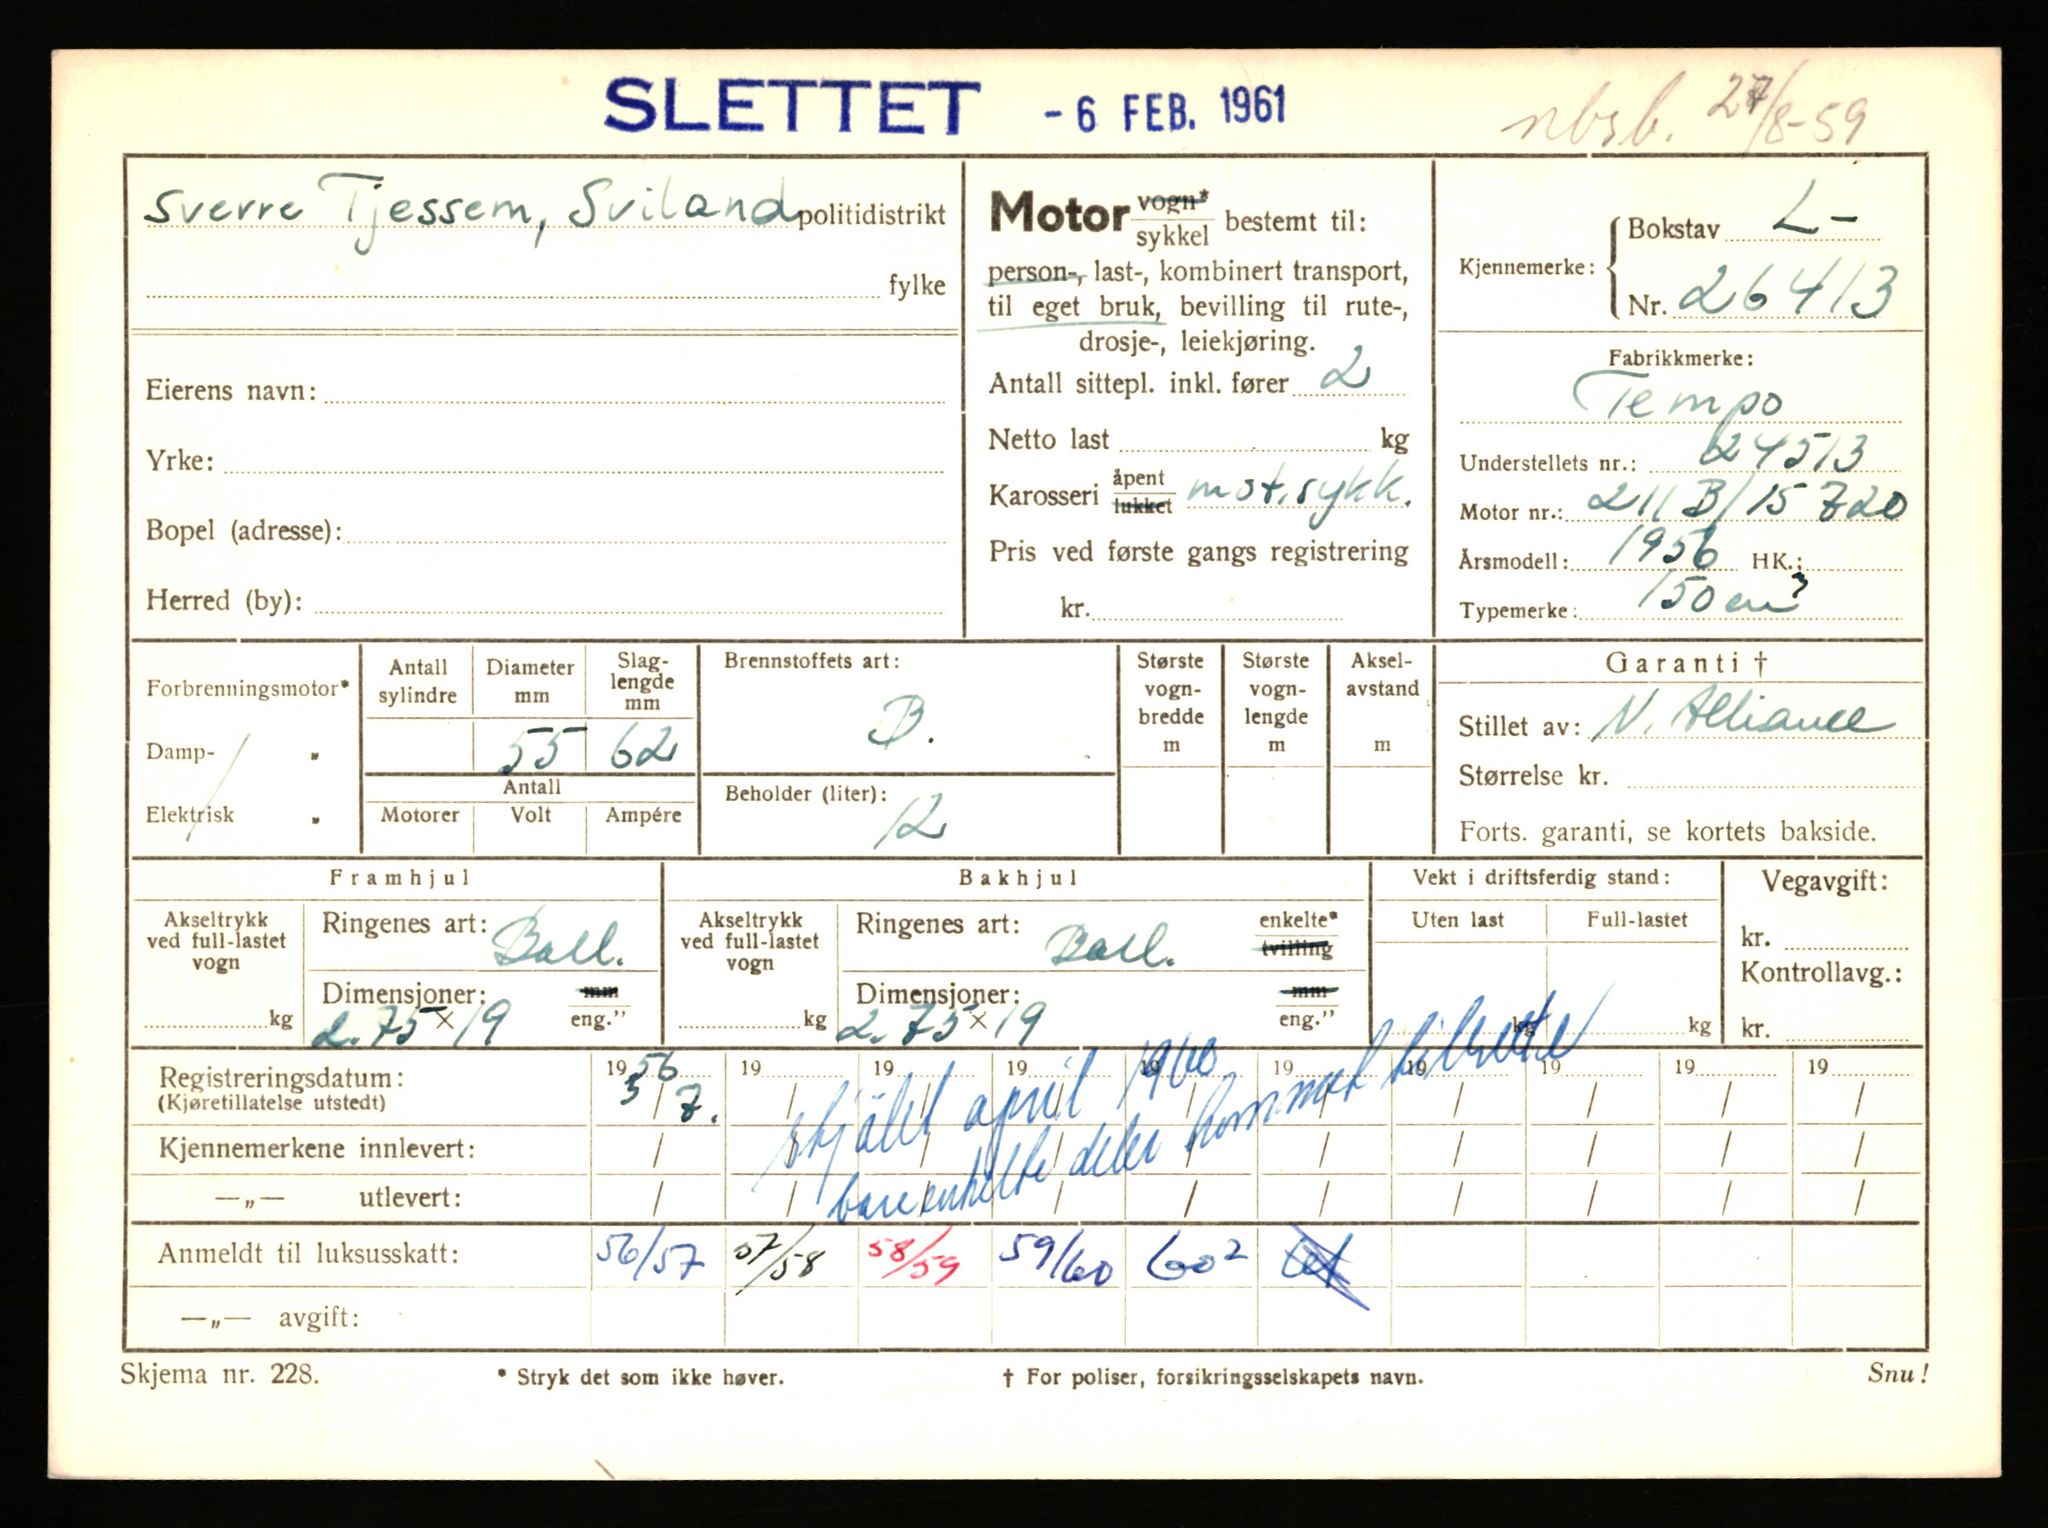 SLETTET - 6 FEB. 1961
27/8-59
Sverre Tjessem, Sviland politidistrikt
fylke
Eierens navn:
Yrke:
Bopel (adresse):
Herred (by):
Motor vogn* sykkel bestemt til:
person-, last-, kombinert transport,
til eget bruk, bevilling til rute-,
drosje-, leiekjøring.
Antall sittepl. inkl. fører 2
Netto last kg
Karosseri åpent lukket mot.sykk.
Pris ved første gangs registrering
kr.
Kjennemerke: Bokstav L-
Nr. 26413
Fabrikkmerke:
Tempo
Understellets nr.: 624513
Motor nr.: 211B/15720
Årsmodell: 1956 HK.:
Typemerke: 150 cm³
Forbrenningsmotor*
Damp- „
Elektrisk „
Antall sylindre
Diameter mm
Slag-
lengde
mm
55 62
Antall
Motorer Volt Ampére
Brennstoffets art:
B.
Beholder (liter):
12
Største
vogn-
bredde
m
Største
vogn-
lengde
m
Aksel-
avstand
m
Garanti †
Stillet av: N. Alliance
Størrelse kr.
Forts. garanti, se kortets bakside.
Framhjul
Akseltrykk
ved full-lastet
vogn
kg
Ringenes art: Ball.
Dimensjoner: mm
2.75 × 19 eng.”
Bakhjul
Akseltrykk
ved full-lastet
vogn
kg
Ringenes art: Ball. enkelte* tvilling
Dimensjoner: mm
2.75 × 19 eng.”
Vekt i driftsferdig stand:
Uten last Full-lastet
kg kg
Vegavgift:
kr.
Kontrollavg.:
kr.
Registreringsdatum: 1956 19 19 19 19 19 19 19 19 19
(Kjøretillatelse utstedt) 5/7. / / / / / / / / /
Kjennemerkene innlevert: / / / / / / / / / /
—„— utlevert: / / / / / / / / / /
stjålet april 1960
bare enkelte deler kommet tilbake
Anmeldt til luksusskatt: 56/57 57/58 58/59 59/60 60²
—„— avgift:
Skjema nr. 228. * Stryk det som ikke høver. † For poliser, forsikringsselskapets navn. Snu!